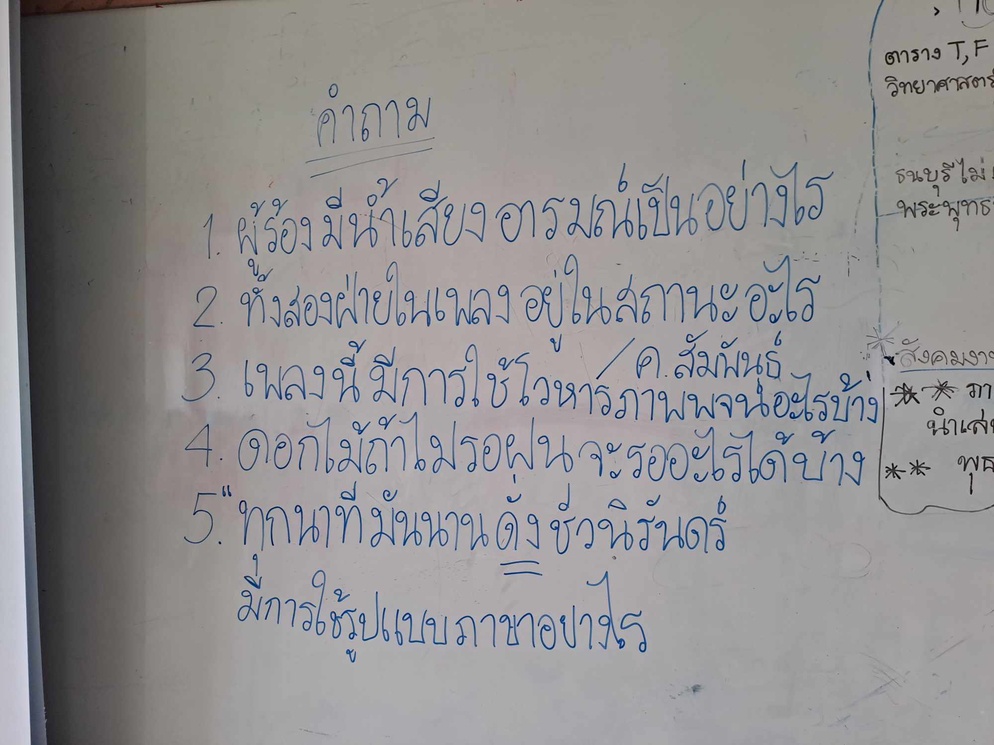 คำถาม
1. ผู้ร้องมีน้ำเสียง อารมณ์เป็นอย่างไร
2. ทั้งสองฝ่ายในเพลง อยู่ในสถานะอะไร
/ ค. สัมพันธ์
3. เพลงนี้ มีการใช้โวหารภาพพจน์อะไรบ้าง
4. ดอกไม้ถ้าไม่รอฝน จะรออะไรได้บ้าง
5. "ทุกนาทีมันนาน ดั่ง ชั่วนิรันดร์
มีการใช้รูปแบบภาษาอย่างไร
ตาราง T, F
วิทยาศาสตร์
ธนบุรีไม่
พระพุทธ
สังคมงาน
** ภา
นำเส
** พุธ